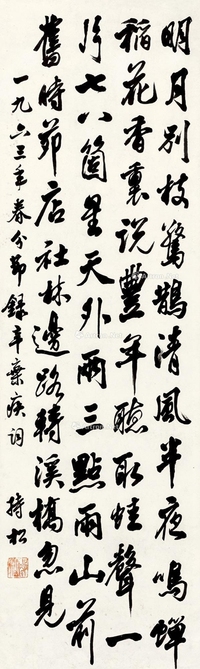 明月别枝驚鵲清風半夜鳴蟬
稻花香裏說豐年聽取蛙聲一
片七八箇星天外兩三點雨山前
舊時茆店社林邊路轉溪橋忽見
一九六三年春分節錄辛棄疾词 持松